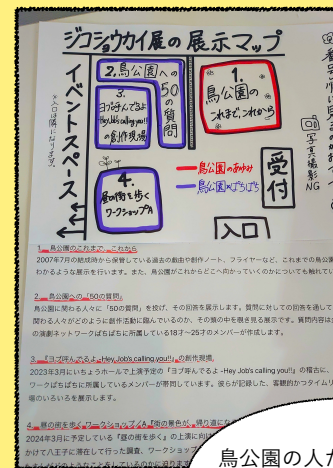 ジコショウカイ展の展示マップ
イベントスペース
※入口は隣になります。
2.鳥公園への50の質問
3.
ヨブ呼んでるよ
Hey,Job's calling you!!
の創作現場
1.
鳥公園の
これまで、これから
4.
昼の街を歩く
ワークショップA
鳥公園のあゆみ
鳥公園のぱちぱち
受付
入口
写真撮影NG
1 鳥公園のこれまで、これから
2007年7月の結成時から保管している過去の戯曲や創作ノート、フライヤーなど、これまでの鳥公園
わかるような展示を行います。また、鳥公園がこれからどこへ向かっていくのかについても触れてい
2 鳥公園への「50の質問」
鳥公園に関わる人々に「50の質問」を投げ、その回答を展示します。質問に対しての回答を通して
関わる人々がどのように創作活動に臨んでいるのか、その頭の中を覗き見る展示です。質問内容は
の演劇ネットワークぱちぱちに所属している18才〜25才のメンバーが作成します。
3 『ヨブ呼んでるよ -Hey,Job's calling you!!』の創作現場
2023年3月にいちょうホールで上演予定の『ヨブ呼んでるよ -Hey,Job's calling you!!』の稽古に、
ワークぱちぱちに所属しているメンバーが帯同しています。彼らが記録した、客観的かつタイムリ
場のいろいろを展示します。
4 昼の街を歩く ワークショップ／A『街の景色が、帰り道にな
2024年3月に予定している『昼の街を歩く』の上演に向け
かけて八王子に滞在して行った調査、ワークショップ
鳥公園の人た